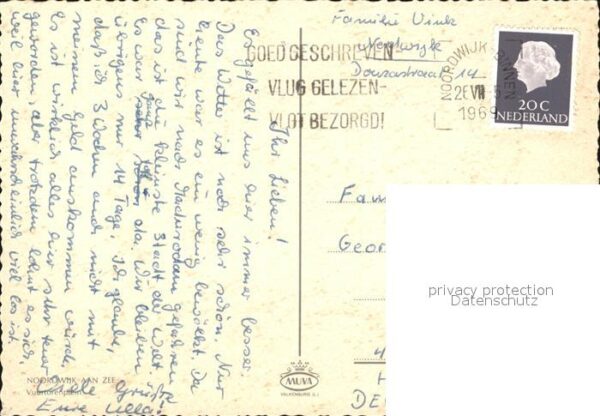 Familie Vink
Noordwijk
Douzastraat 14
GOED GESCHREVEN-
VLUG GELEZEN-
VLOT BEZORGD!
NOORDWIJK-BINNEN
26 VIII
1969
20 C
NEDERLAND
Ihr Lieben!
Es gefällt uns hier immer besser.
Das Wetter ist noch sehr schön. Nur
heute war es ein wenig bewölkt. Da
sind wir nach Madurodam gefahren
das ist die kleinste Stadt der Welt.
Es war ganz toll da. Wir bleiben
übrigens nur 14 Tage. Ich glaube,
daß ich 3 Wochen auch nicht mit
meinem Geld auskommen würde.
Es ist wirklich alles hier sehr teuer
geworden, aber trotzdem lohnt es sich,
weil hier unwahrscheinlich viel los ist.
Viele Grüße
Eure Ulla
Fam
Geor
4
H
DE
NOORDWIJK AAN ZEE
Vuurtorenplein
MUVA
VALKENBURG (L.)
privacy protection
Datenschutz